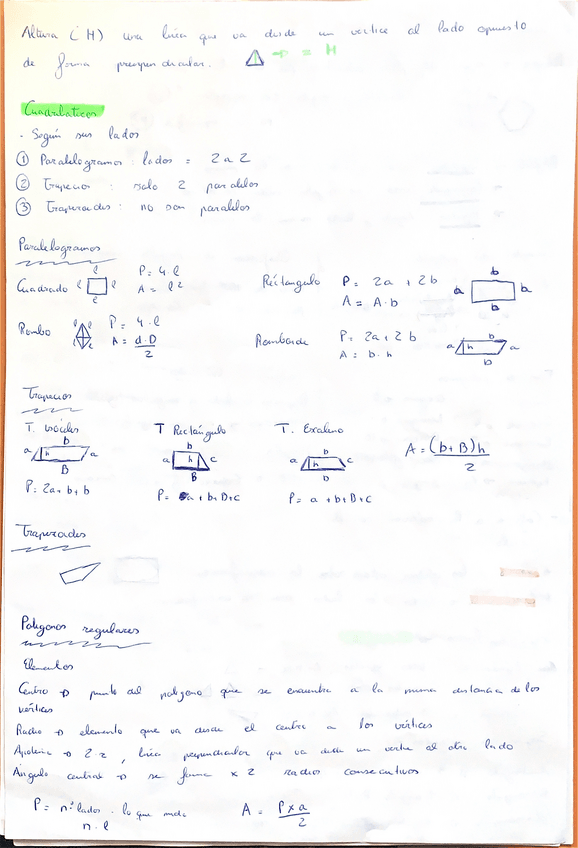 Altura (H) una línea que va desde un vertice al lado opuesto
de forma prependicular. → = H
Cuadriláteros
. Según sus lados
① Paralelogramos: lados = 2 a 2
② Trapecios: solo 2 paralelos
③ Trapezoides: no son paralelos
Paralelogramos
Cuadrado l l l l P = 4·l A = l²
Rectángulo P = 2a + 2b A = A·b b a a b
Rombo l l l l P = 4·l A = d·D / 2
Romboide P = 2a + 2b A = b·h b a h a b
Trapecios
T. isóceles T Rectángulo T. Escaleno
b a h a B b a h c B b a h c b
A = (b+B)h / 2
P = 2a+b+b P = a+b+B+c P = a+b+B+c
Trapezoides
Polígonos regulares
Elementos
Centro → punto del polígono que se encuentra a la misma distancia de los
vértices
Radio → elemento que va desde el centro a los vértices
Apotema → línea perpendicular que va desde un vertice al otro lado
Ángulo central → se forma x 2 radios consecutivos
P = nº lados · lo que mide A = P x a / 2
n · l